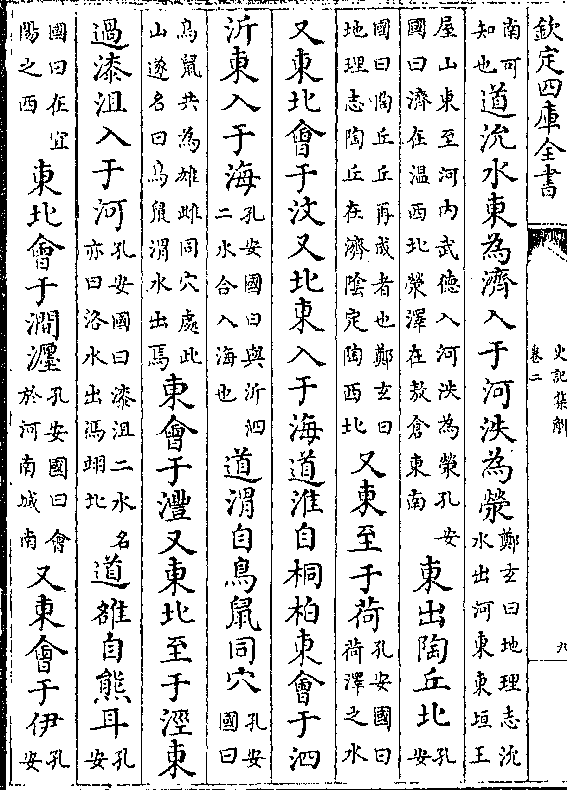 欽定四庫全書
史記集解
卷二
九
南可知也道沇水東為濟入于河泆為滎鄭玄曰地理志沇水出河東東垣王
屋山東至河內武德入河泆為滎孔安國曰濟在溫西北滎澤在敖倉東南東出陶丘北孔安
國曰陶丘丘再成者也鄭玄曰地理志陶丘在濟陰定陶西北又東至于荷孔安國曰荷澤之水
又東北會于汶又北東入于海道淮自桐柏東會于泗
沂東入于海孔安國曰與沂泗二水合入海也道渭自鳥鼠同穴孔安國曰
鳥鼠共為雄雌同穴處此山遂名曰鳥鼠渭水出焉東會于灃又東北至于涇東
過漆沮入于河孔安國曰漆沮二水名亦曰洛水出馮翊北道雒自熊耳孔安
國曰在宜陽之西東北會于澗瀍孔安國曰會於河南城南又東會于伊孔安